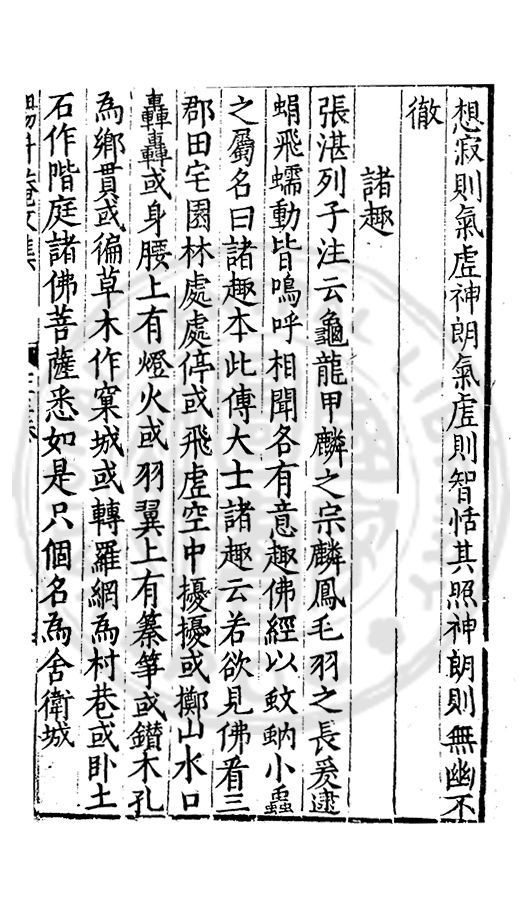 想寂則氣虛神朗氣虛則智恬其照神朗則無幽不
徹
諸趣
張湛列子注云龜龍甲麟之宗麟鳳毛羽之長爰逮
蜎飛蠕動皆鳴呼相聞各有意趣佛經以蚊蚋小蟲
之屬名曰諸趣本此傳大士諸趣云若欲見佛看三
郡田宅園林處處停或飛虛空中擾擾或擲山水口
轟轟或身腰上有燈火或羽翼上有𥱼箏或鑚木孔
為鄉貫或徧草木作窠城或轉羅網為村巷或卧土
石作階庭諸佛菩薩悉如是只個名為舍衛城